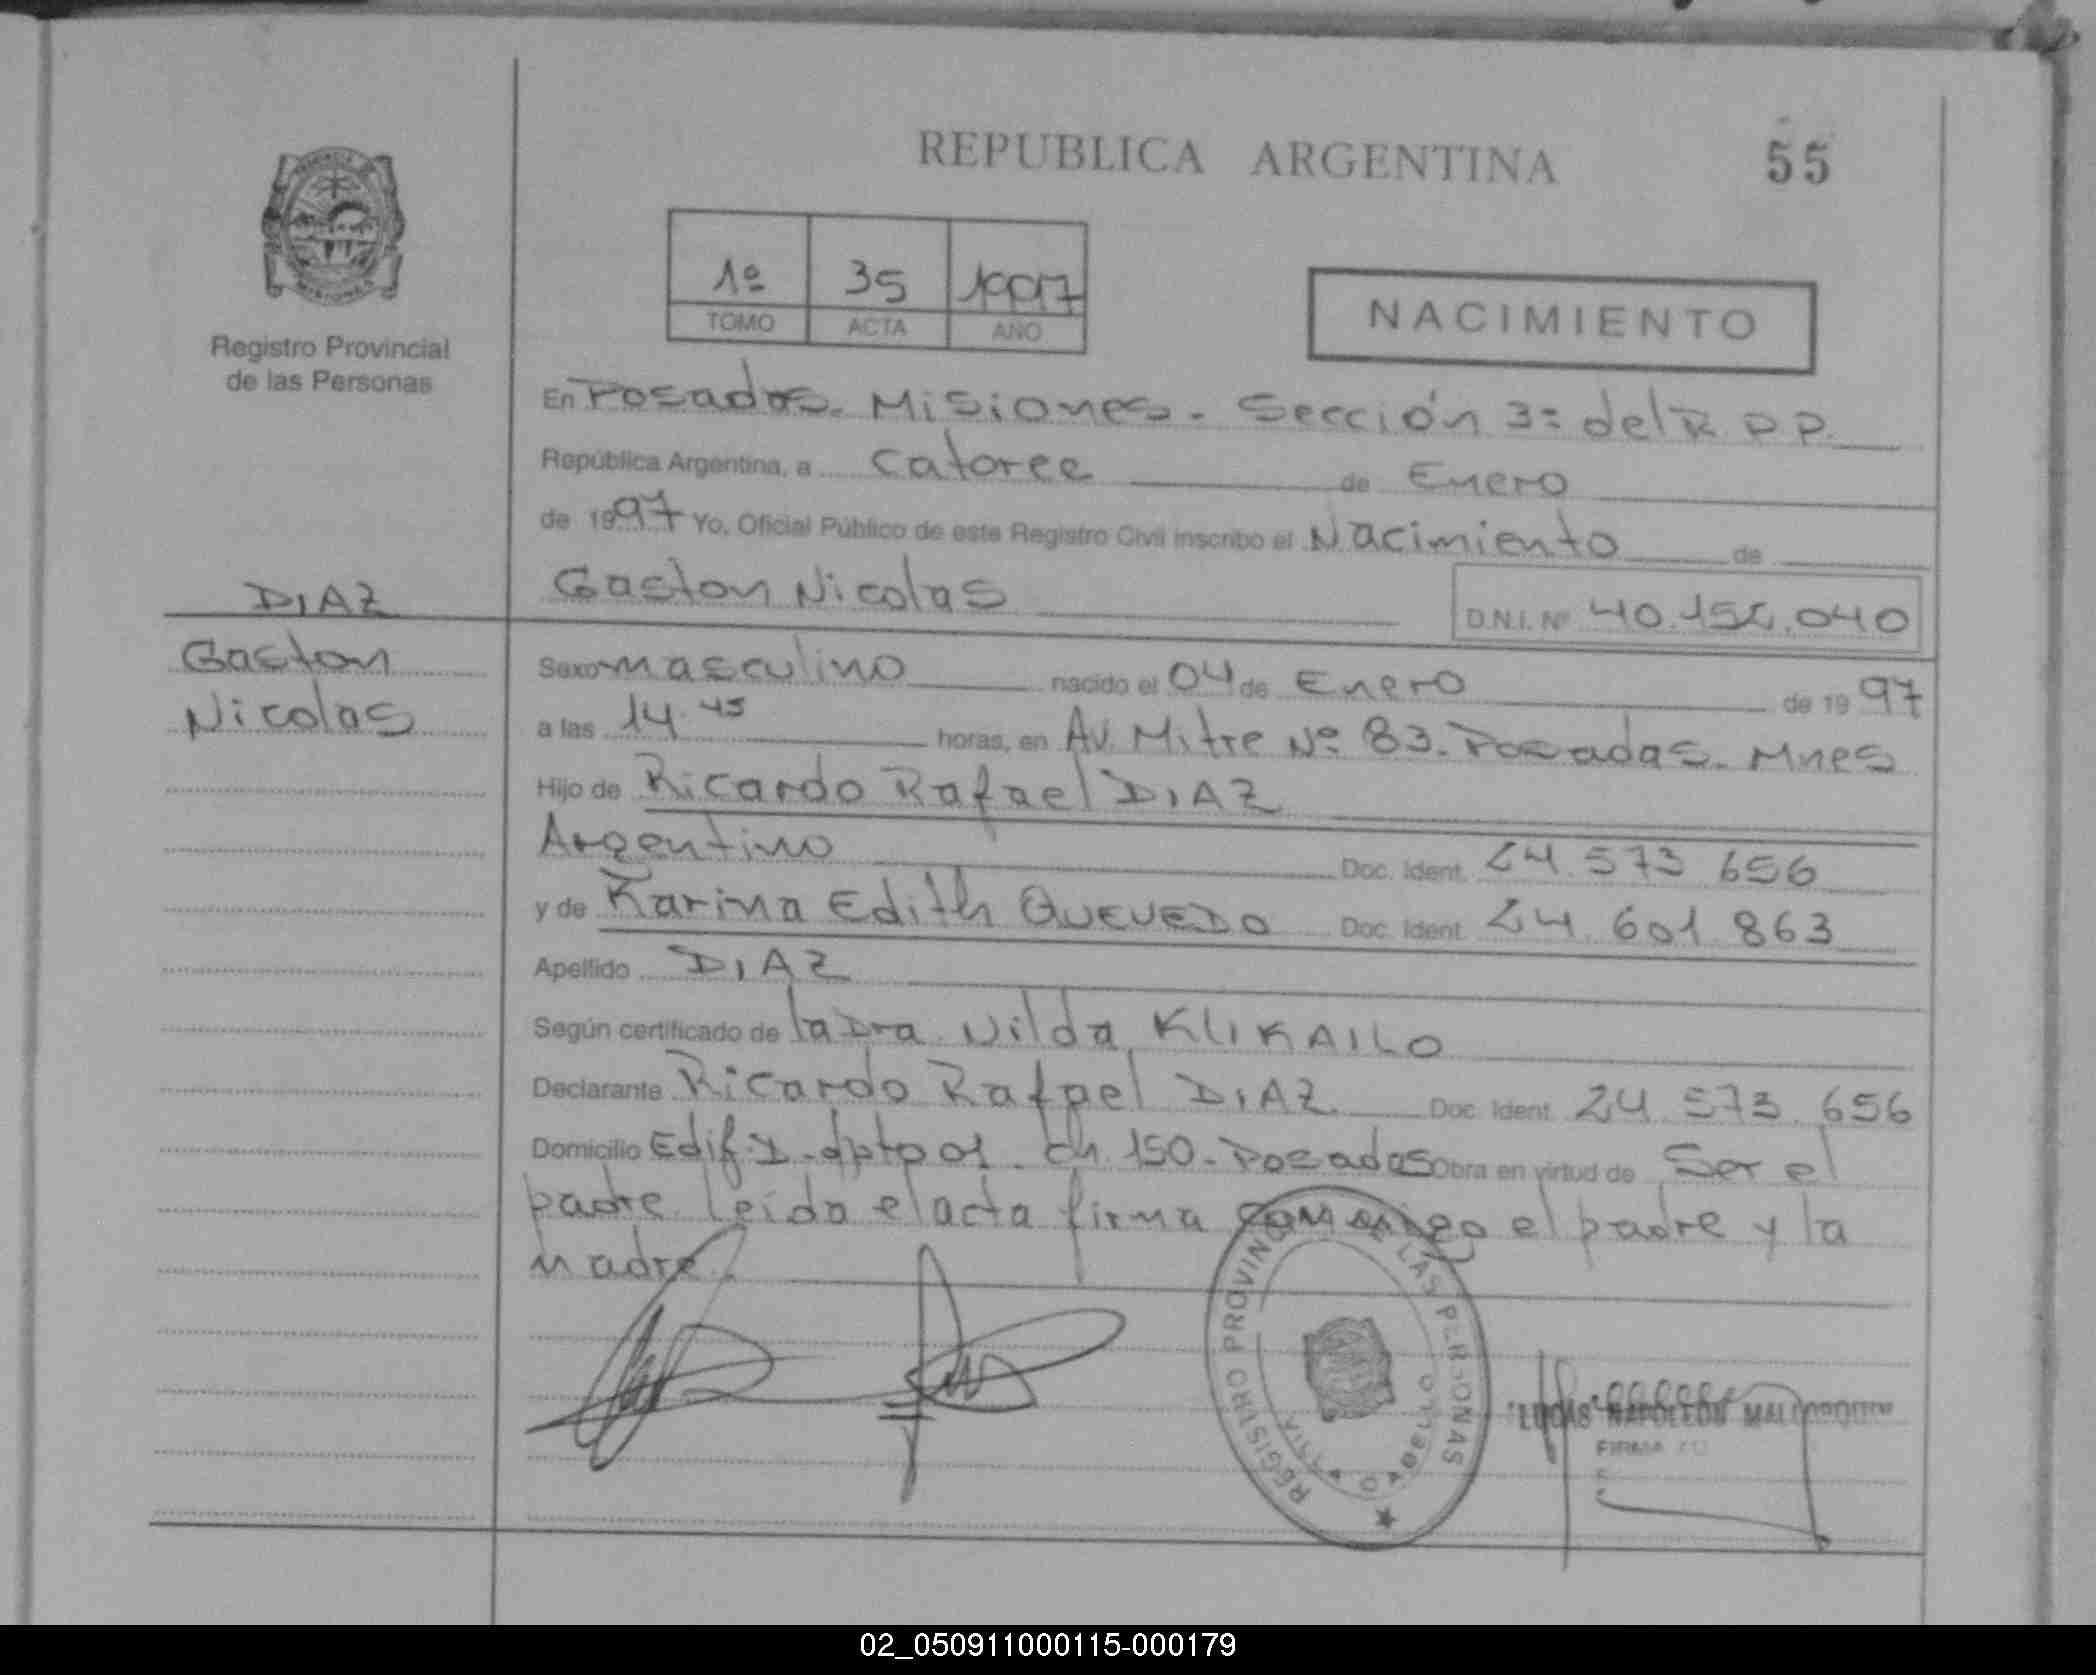 REPUBLICA ARGENTINA
55
1º 35 1997
TOMO ACTA AÑO
NACIMIENTO
Registro Provincial
de las Personas
En Posadas. Misiones. Sección 3ª del R.P.P.
República Argentina, a Catorce de Enero
de 1997 Yo, Oficial Público de este Registro Civil inscribo el Nacimiento de
Gaston Nicolas D.N.I. Nº
DIAZ
Gaston
Nicolas
Sexo masculino nacido el 04 de Enero de 1997
a las 14.45 horas, en Av. Mitre Nº 83. Posadas. Mnes
Hijo de Ricardo Rafael DIAZ
Argentino Doc. Ident. 24.573.656
y de Karina Edith QUEVEDO Doc. Ident. 24.601.863
Apellido DIAZ
Según certificado de la Dra Nilda KLIKAILO
Declarante Ricardo Rafael DIAZ Doc. Ident. 24.573.656
Domicilio Edif. D. dpto 01. Ch. 150. Posadas Obra en virtud de Ser el
padre. Leída el acta firma conmigo el padre y la
madre.
REGISTRO PROVINCIAL DE LAS PERSONAS
"LUCAS" NAPOLEON
FIRMA
02_050911000115-000179